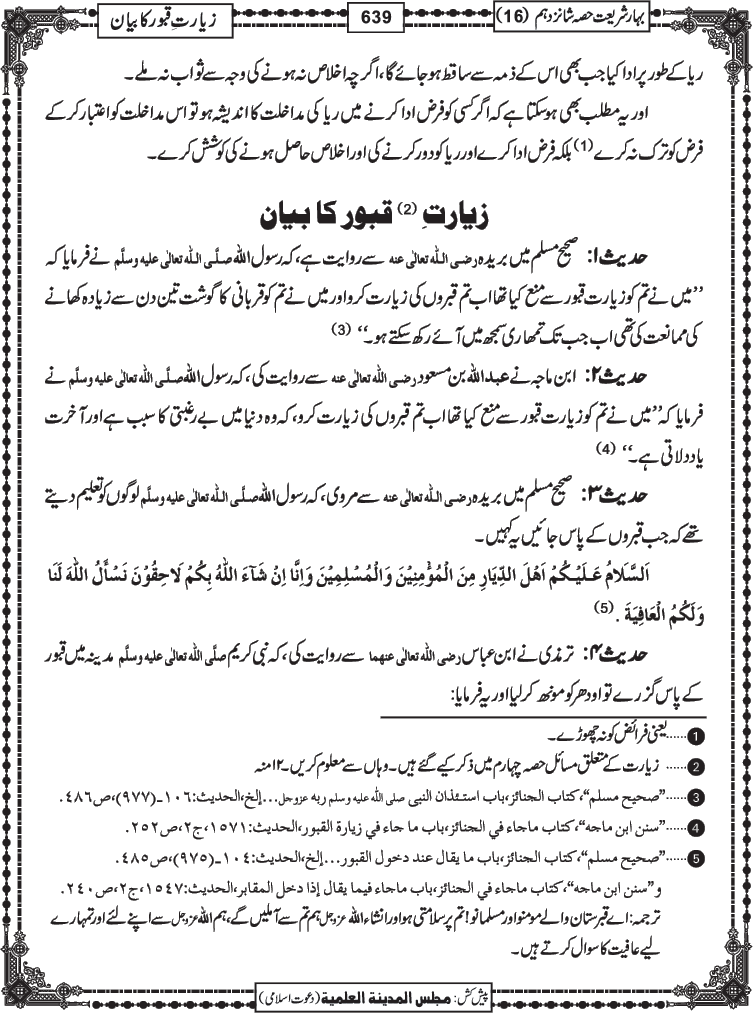 بہارِ شریعت حصہ شانزدہم (16)
639
زیارتِ قبور کا بیان
ریا کے طور پر ادا کیا جب بھی اس کے ذمہ سے ساقط ہو جائے گا، اگرچہ اخلاص نہ ہونے کی وجہ سے ثواب نہ ملے۔
اور یہ مطلب بھی ہوسکتا ہے کہ اگر کسی کو فرض ادا کرنے میں ریا کی مداخلت کا اندیشہ ہو تو اس مداخلت کو اعتبار کرکے
فرض کو ترک نہ کرے(1) بلکہ فرض ادا کرے اور ریا کو دور کرنے کی اور اخلاص حاصل ہونے کی کوشش کرے۔
زیارتِ (2) قبور کا بیان
حدیث ۱: صحیح مسلم میں بریدہ رضی اللہ تعالٰی عنہ سے روایت ہے، کہ رسول اللہ صلَّی اللہ تعالٰی علیہ وسلَّم نے فرمایا کہ
’’میں نے تم کو زیارت قبور سے منع کیا تھا اب تم قبروں کی زیارت کرو اور میں نے تم کو قربانی کا گوشت تین دن سے زیادہ کھانے
کی ممانعت کی تھی اب جب تک تمھاری سمجھ میں آئے رکھ سکتے ہو۔‘‘ (3)
حدیث ۲: ابن ماجہ نے عبداللہ بن مسعود رضی اللہ تعالٰی عنہ سے روایت کی، کہ رسول اللہ صلَّی اللہ تعالٰی علیہ وسلَّم نے
فرمایا کہ ’’میں نے تم کو زیارت قبور سے منع کیا تھا اب تم قبروں کی زیارت کرو، کہ وہ دنیا میں بے رغبتی کا سبب ہے اور آخرت
یاد دلاتی ہے۔‘‘ (4)
حدیث ۳: صحیح مسلم میں بریدہ رضی اللہ تعالٰی عنہ سے مروی، کہ رسول اللہ صلَّی اللہ تعالٰی علیہ وسلَّم لوگوں کو تعلیم دیتے
تھے کہ جب قبروں کے پاس جائیں یہ کہیں۔
اَلسَّلَامُ عَلَیْکُمْ اَھْلَ الدِّیَارِ مِنَ الْمُؤْمِنِیْنَ وَالْمُسْلِمِیْنَ وَاِنَّا اِنْ شَآءَ اللّٰہُ بِکُمْ لَاحِقُوْنَ نَسْأَلُ اللّٰہَ لَنَا
وَلَکُمُ الْعَافِیَۃَ . (5)
حدیث ۴: ترمذی نے ابن عباس رضی اللہ تعالٰی عنہما سے روایت کی، کہ نبی کریم صلَّی اللہ تعالٰی علیہ وسلَّم مدینہ میں قبور
کے پاس گزرے تو اودھر کو مونھ کرلیا اور یہ فرمایا:
1 ......یعنی فرائض کو نہ چھوڑے۔
2 ......زیارت کے متعلق مسائل حصہ چہارم میں ذکر کیے گئے ہیں۔ وہاں سے معلوم کریں۔ ۱۲ منہ
3 ......’’صحیح مسلم‘‘، کتاب الجنائز، باب استئذان النبی صلی اللہ علیہ وسلم ربہ عزوجل... إلخ، الحدیث: ۱۰۶ـ(۹۷۷)، ص۴۸۶.
4 ......’’سنن ابن ماجه‘‘، کتاب ماجاء في الجنائز، باب ما جاء في زیارة القبور، الحدیث: ۱۵۷۱، ج۲، ص۲۵۲.
5 ......’’صحیح مسلم‘‘، کتاب الجنائز، باب ما یقال عند دخول القبور... إلخ، الحدیث: ۱۰۴ـ(۹۷۵)، ص۴۸۵.
و’’سنن ابن ماجه‘‘، کتاب ماجاء في الجنائز، باب ماجاء فیما یقال إذا دخل المقابر، الحدیث: ۱۵۴۷، ج۲، ص۲۴۰.
ترجمہ: اے قبرستان والے مومنو اور مسلمانو! تم پر سلامتی ہو اور انشاء اللہ عزوجل ہم تم سے آملیں گے، ہم اللہ عزوجل سے اپنے لئے اور تمہارے
لیے عافیت کا سوال کرتے ہیں۔
پیش کش: مجلس المدینۃ العلمیۃ (دعوت اسلامی)